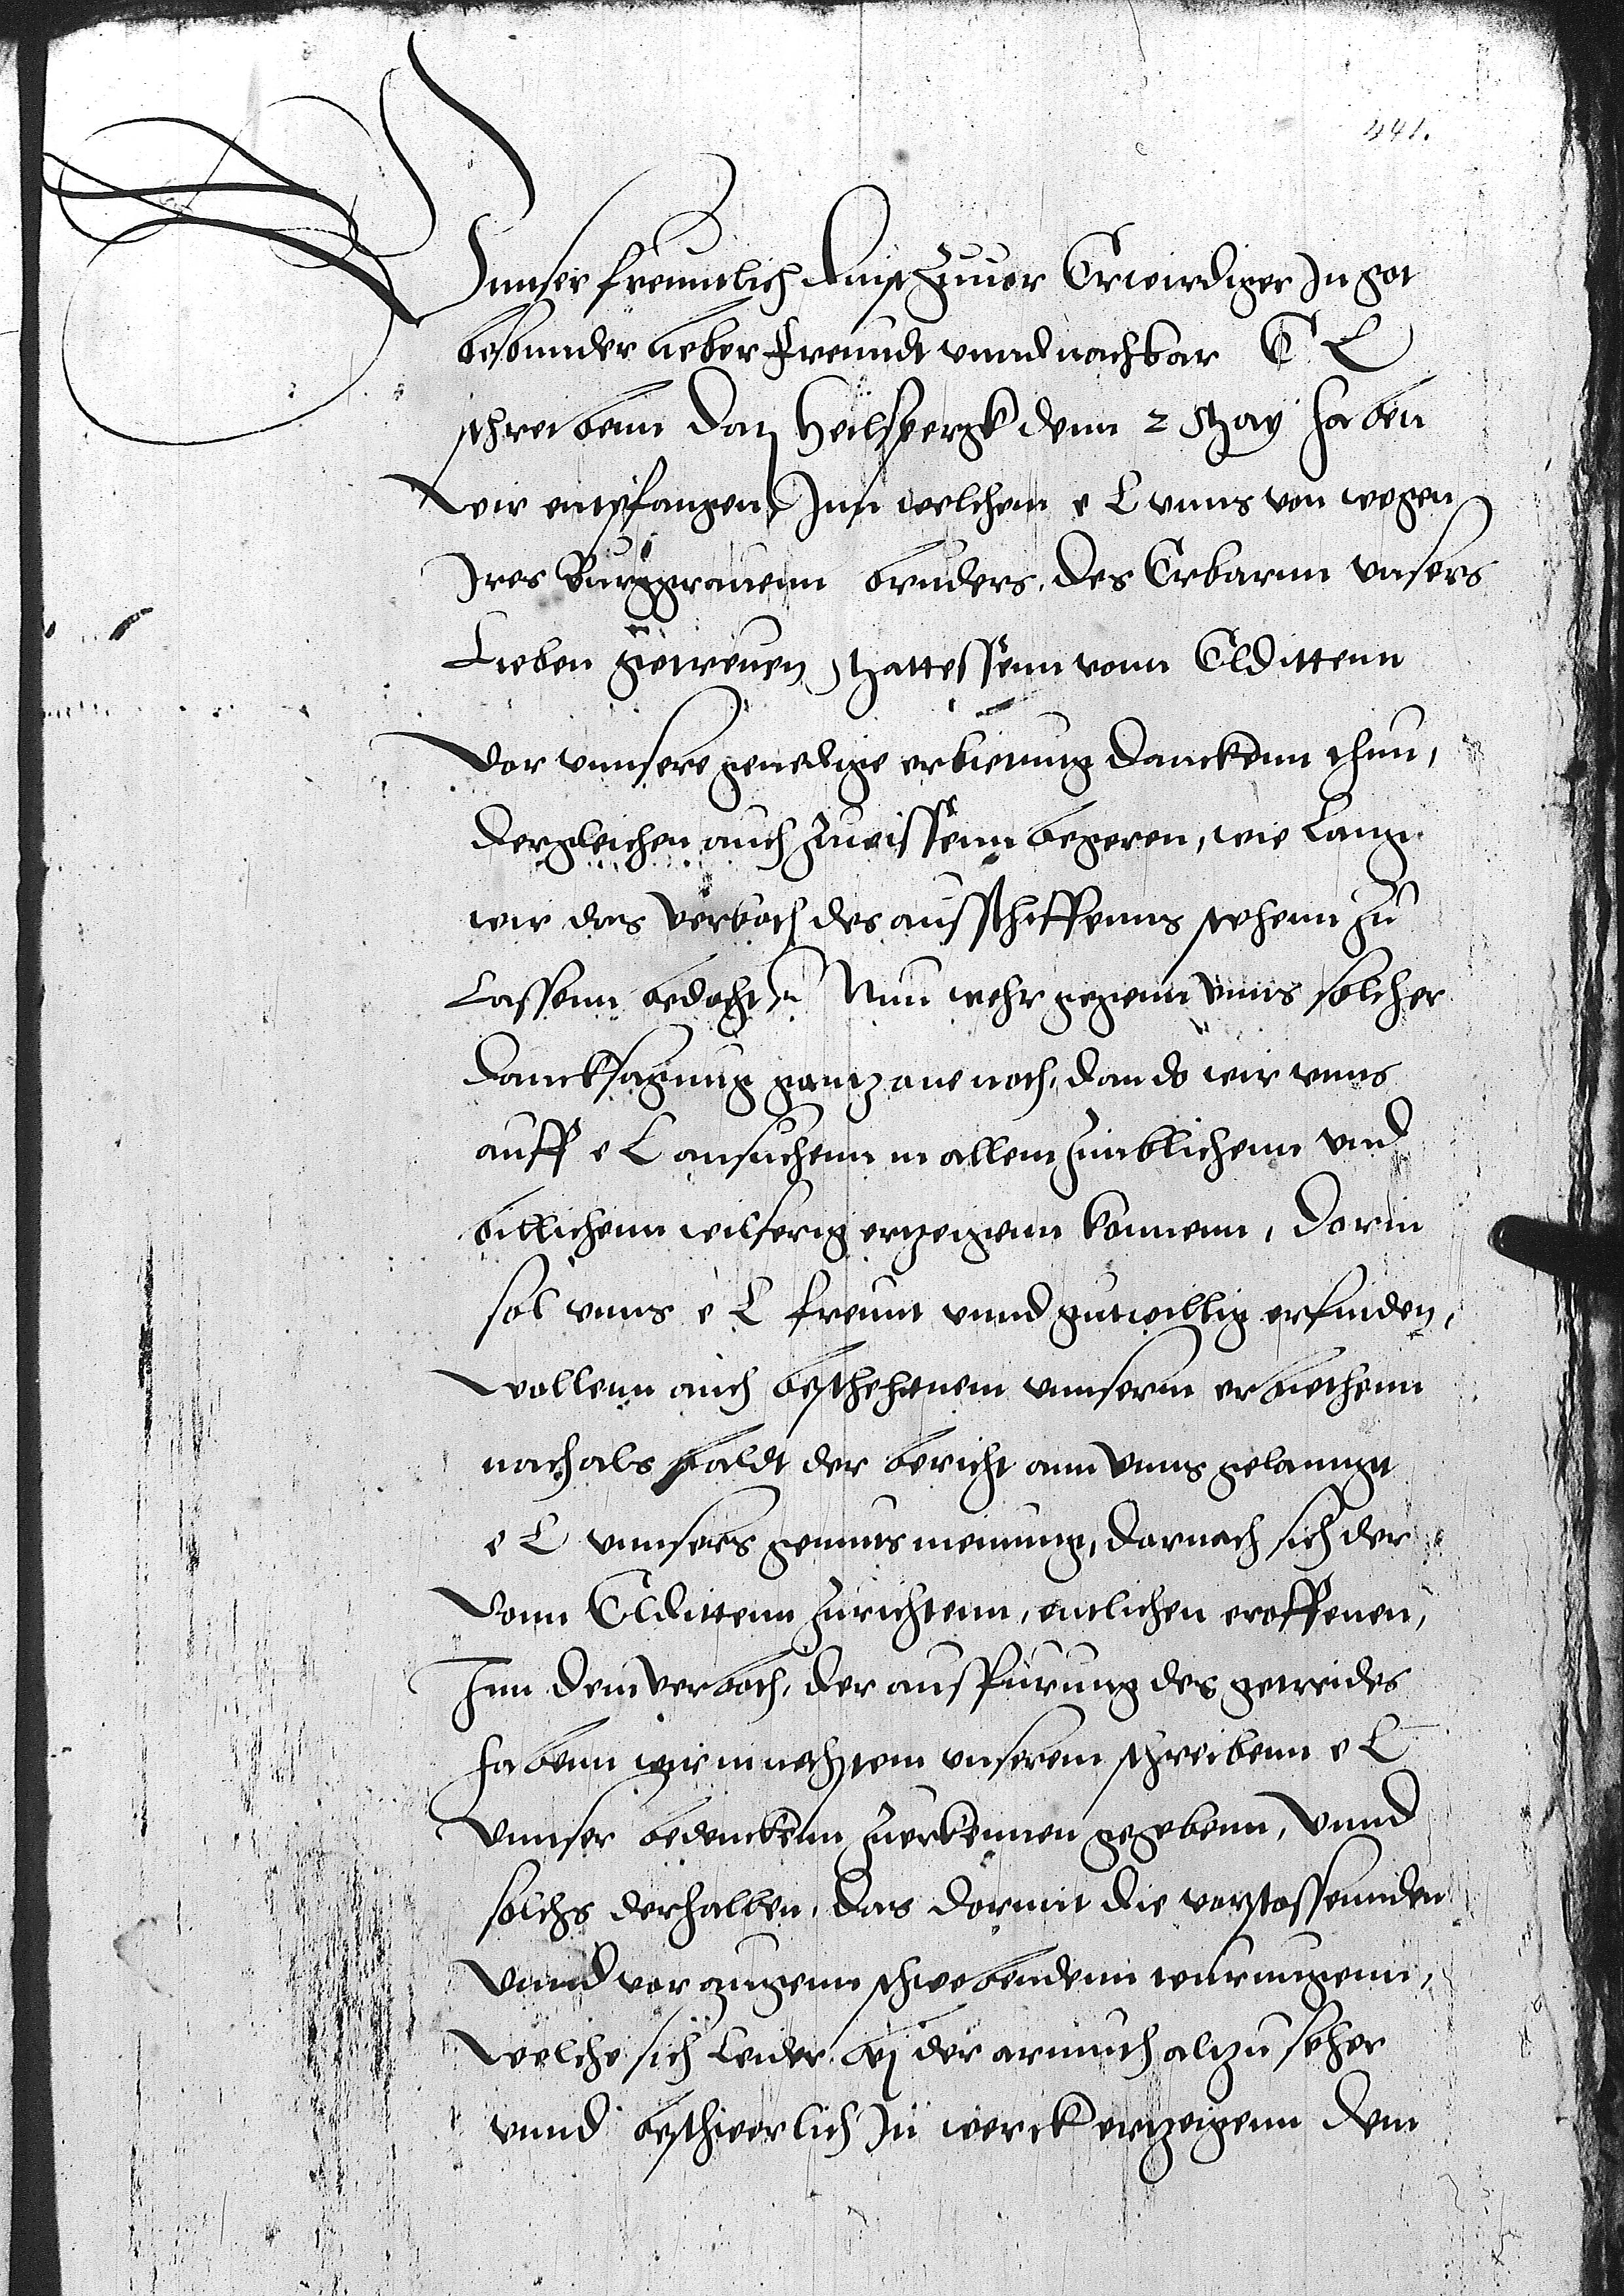 441.
Vnnser freuntlich dinst zuuor Erwirdiger In got
besonnder lieber Freundt vnnd nachbar E L
schreibenn dat Heilspergk denn 2 May haben
wir entpfangen, Inn welchem e L vnns von wegen
Ires Burggrauenn bruders, des Erbarnn vnsers
Lieben getreuen, Mattessenn vonn Eldittenn
vor vnnsere genedige erbietung danckenn thun,
dergleichen auch zuwissenn begeren, wie lange
wir das verboth des ausschiffenns stehenn zu
Lassenn bedacht, Nun wehr gegenn vnns solcher
dancksagung gantz ane noth, dan do wir vnns
auff e L ansuchenn in allem zimblichenn vnd
billichenn wilferig ertzeigenn konnenn, dorin
sol vnns e L freunt vnnd gutwillig erfinden,
wollenn auch beschehenem vnnserm erbiethenn
nach als baldt der bericht ann vnns gelannget
e L vnnsers gemuts meinung, darnach sich der
vonn Eldittenn zurichtenn, entlichen eroffenen,
Inn dem verboth, der ausfurung des getreides
habenn wir in nechstem vnserem schreibenn e L
vnnser bedenckenn zuerkennen gegebenn, vnnd
solchs derhalben, das dormit die vorstossennden
vnnd vor augenn schwebendenn teurungenn,
welche sich leider bej der armuth altzu seher
vnnd beschwerlich Im werck ertzeigenn dem